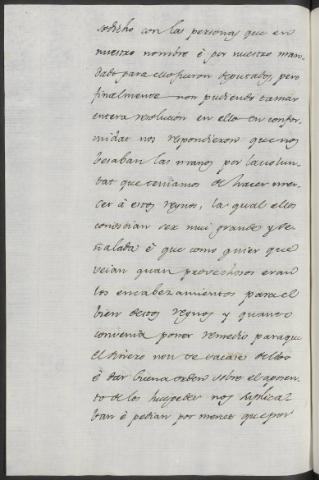 sodicho con las personas que en
nuestro nombre é por nuestro man-
dado para ello fueron deputados, pero
finalmente non pudiendo tomar
entera resolucion en ello en confor-
midat nos respondieron que nos
besaban las manos por la volun-
tat que teniamos de hacer mer-
cer á estos reynos, la qual ellos
conoscian ser mui grande y se-
ñalada é que como quier que
veian quan provechosos eran
los encabezamientos para el
bien destos reynos y quanto
convenia poner remedio para que
el dinero non se sacase dellos
é dar buena orden sobre el aposen-
to de los huespedes nos suplica-
ban é pedian por merced que por